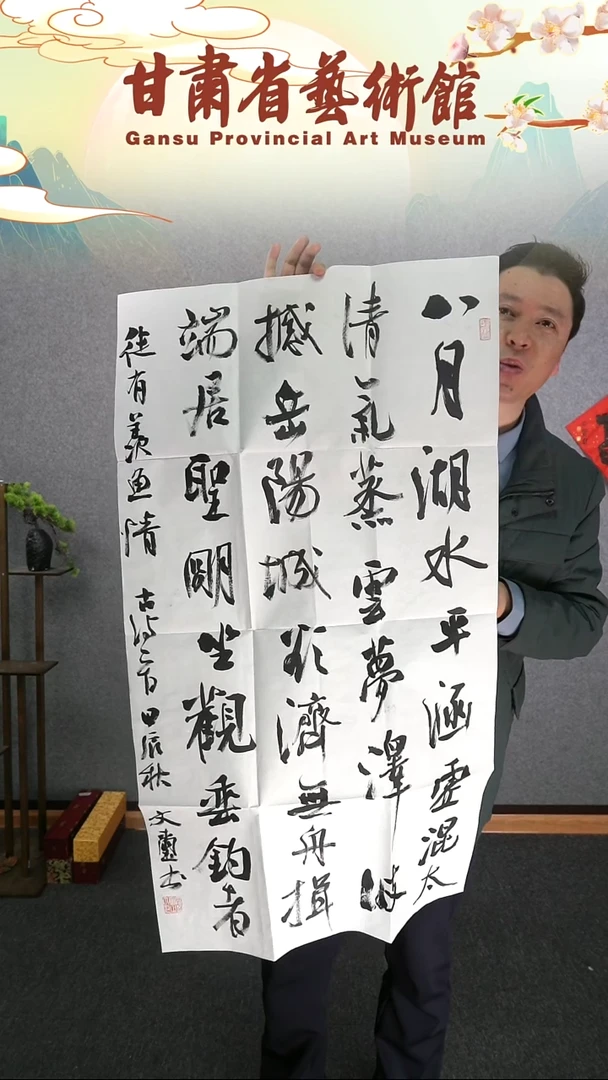 甘肅省藝術館
Gansu Provincial Art Museum
八月湖水平涵虛混太
清氣蒸雲夢澤波
撼岳陽城欲濟無舟楫
端居聖明坐觀垂釣者
徒有羨魚情 古诗 甲辰秋 文 书